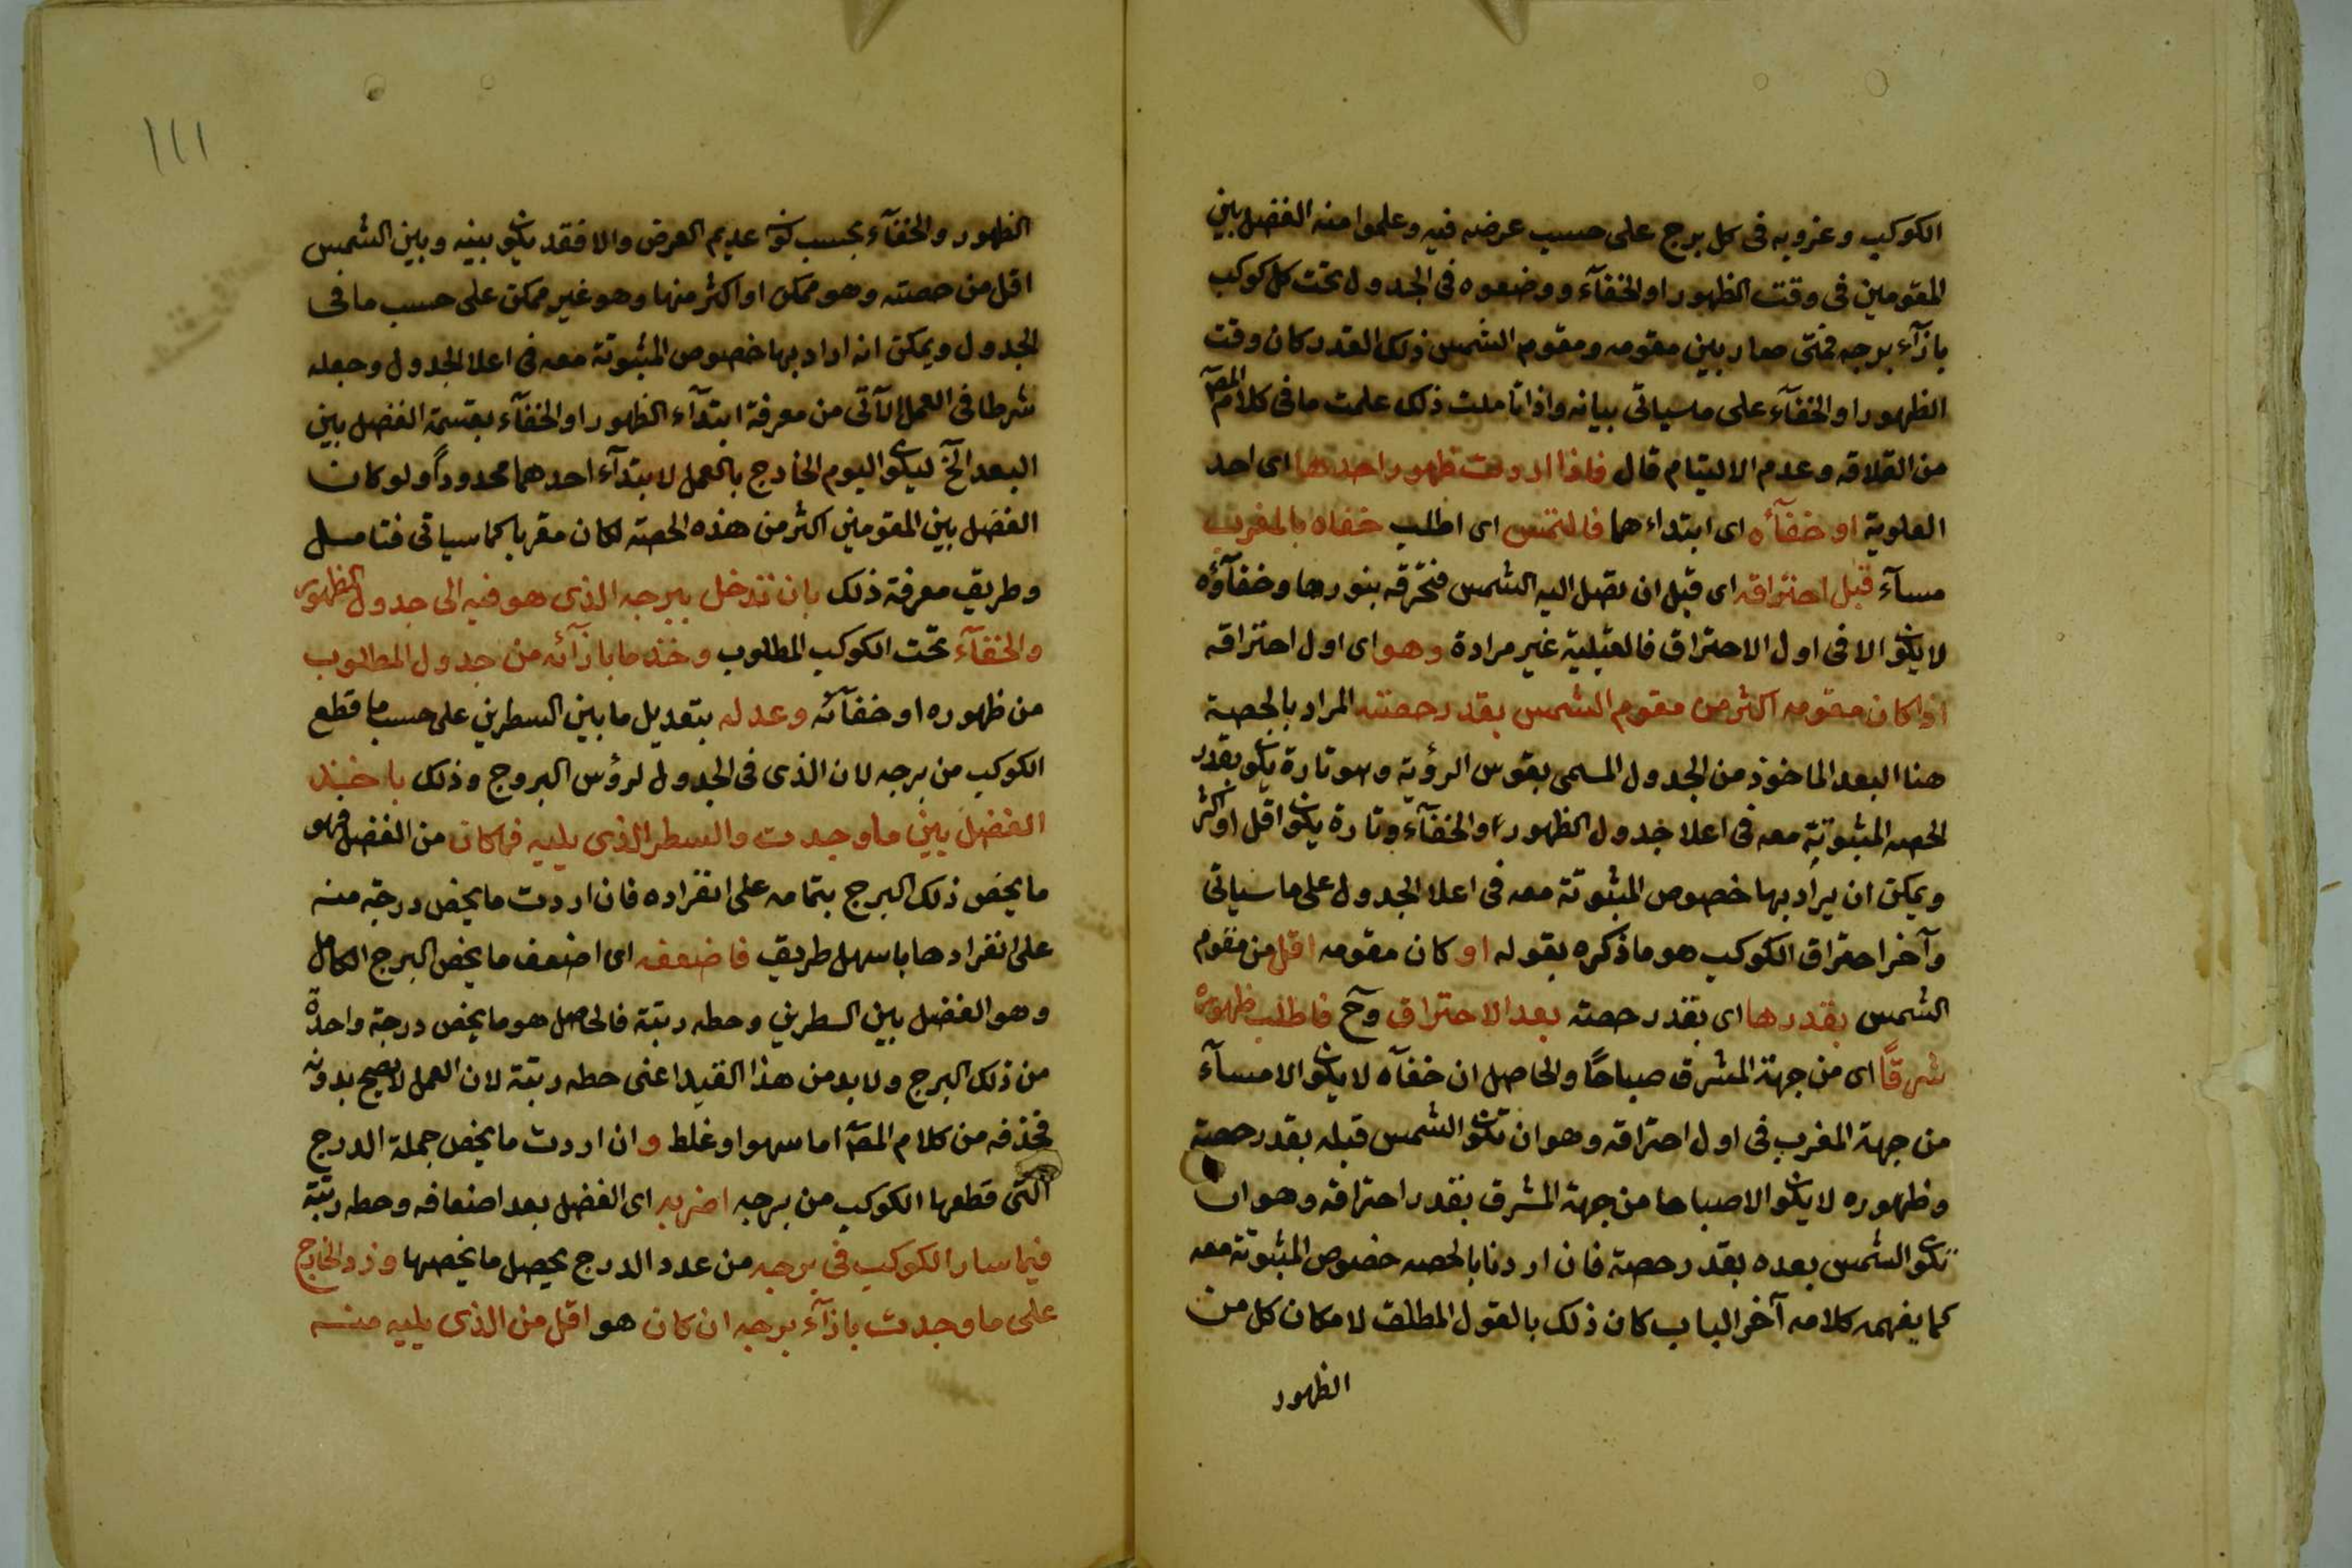 الكوكب وغروبه فى كل برج على حسب عرضه فيه وعلموا منه الفضل بين
المقومين فى وقت الظهور او الخفآء ووضعوه فى الجدول تحت كل كوكب
بازآء برجه فمتى صار بين مقومه ومقوم الشمس ذلك القدر كان وقت
الظهور او الخفآء على ماسياتى بيانه واذا تاملت ذلك علمت ما فى كلام المصـ
من القلاقه وعدم الالتيام قال فاذا اردت ظهور احدها اى احد
العلوية او خفآئه اى ابتداء هما فالتمس اى اطلب خفاه بالمغرب
مسآء قبل احتراقه اى قبل ان تصل اليه الشمس فتحرقه بنورها وخفآؤه
لا يكون الا فى اول الاحتراق فالقبلية غير مرادة وهو اى اول احتراقه
اذا كان مقومه اكثر من مقوم الشمس بقدر حصته المراد بالحصة
هنا البعد الماخوذ من الجدول المسمى بقوس الرؤية وهو تارة يكون بقدر
الحصه المثبوتة معه فى اعلا جدول الظهور او الخفآء وتارة يكون اقل او اكثر
ويمكن ان يراد بها خصوص المثبوتة معه فى اعلا الجدول على ما سياتى
وآخر احتراق الكوكب هو ما ذكره بقوله او كان مقومه اقل من مقوم
الشمس بقدرها اى بقدر حصته بعد الاحتراق وآح فاطلب ظهوره
شرقًا اى من جهة المشرق صباحًا والحاصل ان خفآه لا يكون الا مسآء
من جهة المغرب فى اول احتراقه وهو ان تكون الشمس قبله بقدر حصته
وظهوره لا يكون الا صباحا من جهة المشرق بقدر احتراقه وهو ان
تكون الشمس بعده بقدر حصته فان اردنا بالحصه خصوص المثبوتة معه
كما يفهمه كلامه آخر الباب كان ذلك بالقول المطلق لامكان كل من
الظهور
١١١
الظهور والخفآء بحسب كونه عديم العرض والا فقد يكون بينه وبين الشمس
اقل من حصته وهو ممكن او اكثر منها وهو غير ممكن على حسب ما فى
الجدول ويمكن انه اراد بها خصوص المثبوتة معه فى اعلا الجدول وجعله
شرطا فى العمل الآتى من معرفة ابتدآء الظهور او الخفآء بقسمة الفضل بين
البعد الخ ليكون اليوم الخارج بالعمل لابتدآء احدهما محدوداً ولو كان
الفضل بين المقومين اكثر من هذه الحصته لكان مقربا كما سياتى فتامل
وطريق معرفة ذلك بان تدخل ببرجه الذى هو فيه الى جدول الظهور
والخفآء تحت الكوكب المطلوب وخذ ما بازآئه من جدول المطلوب
من ظهوره او خفآئه وعدله بتعديل ما بين السطرين على حسب ما قطع
الكوكب من برجه لان الذى فى الجدول لرؤس البروج وذلك باخذ
الفضل بين ما وجدت والسطر الذى يليه فما كان من الفضل فهو
ما يخص ذلك البرج بتمامه على انفراده فان اردت ما يخص درجة منه
على انفرادها باسهل طريق فاضعفه اى اضعف ما يخص البرج الكامل
وهو الفضل بين السطرين وحطه رتبة فالحاصل هو ما يخص درجة واحدة
من ذلك البرج ولا بد من هذا القيد اعنى حطه رتبة لان العمل لا يصح بدونه
فحذفه من كلام المصـ اما سهوا وغلط وان اردت ما يخص جملة الدرج
التى قطعها الكوكب من برجه اضربه اى الفضل بعد اضعافه وحطه رتبة
فيما سار الكوكب فى برجه من عدد الدرج يحصل ما يخصها وزد الخارج
على ما وجدت بازآء برجه ان كان هو اقل من الذى يليه منه